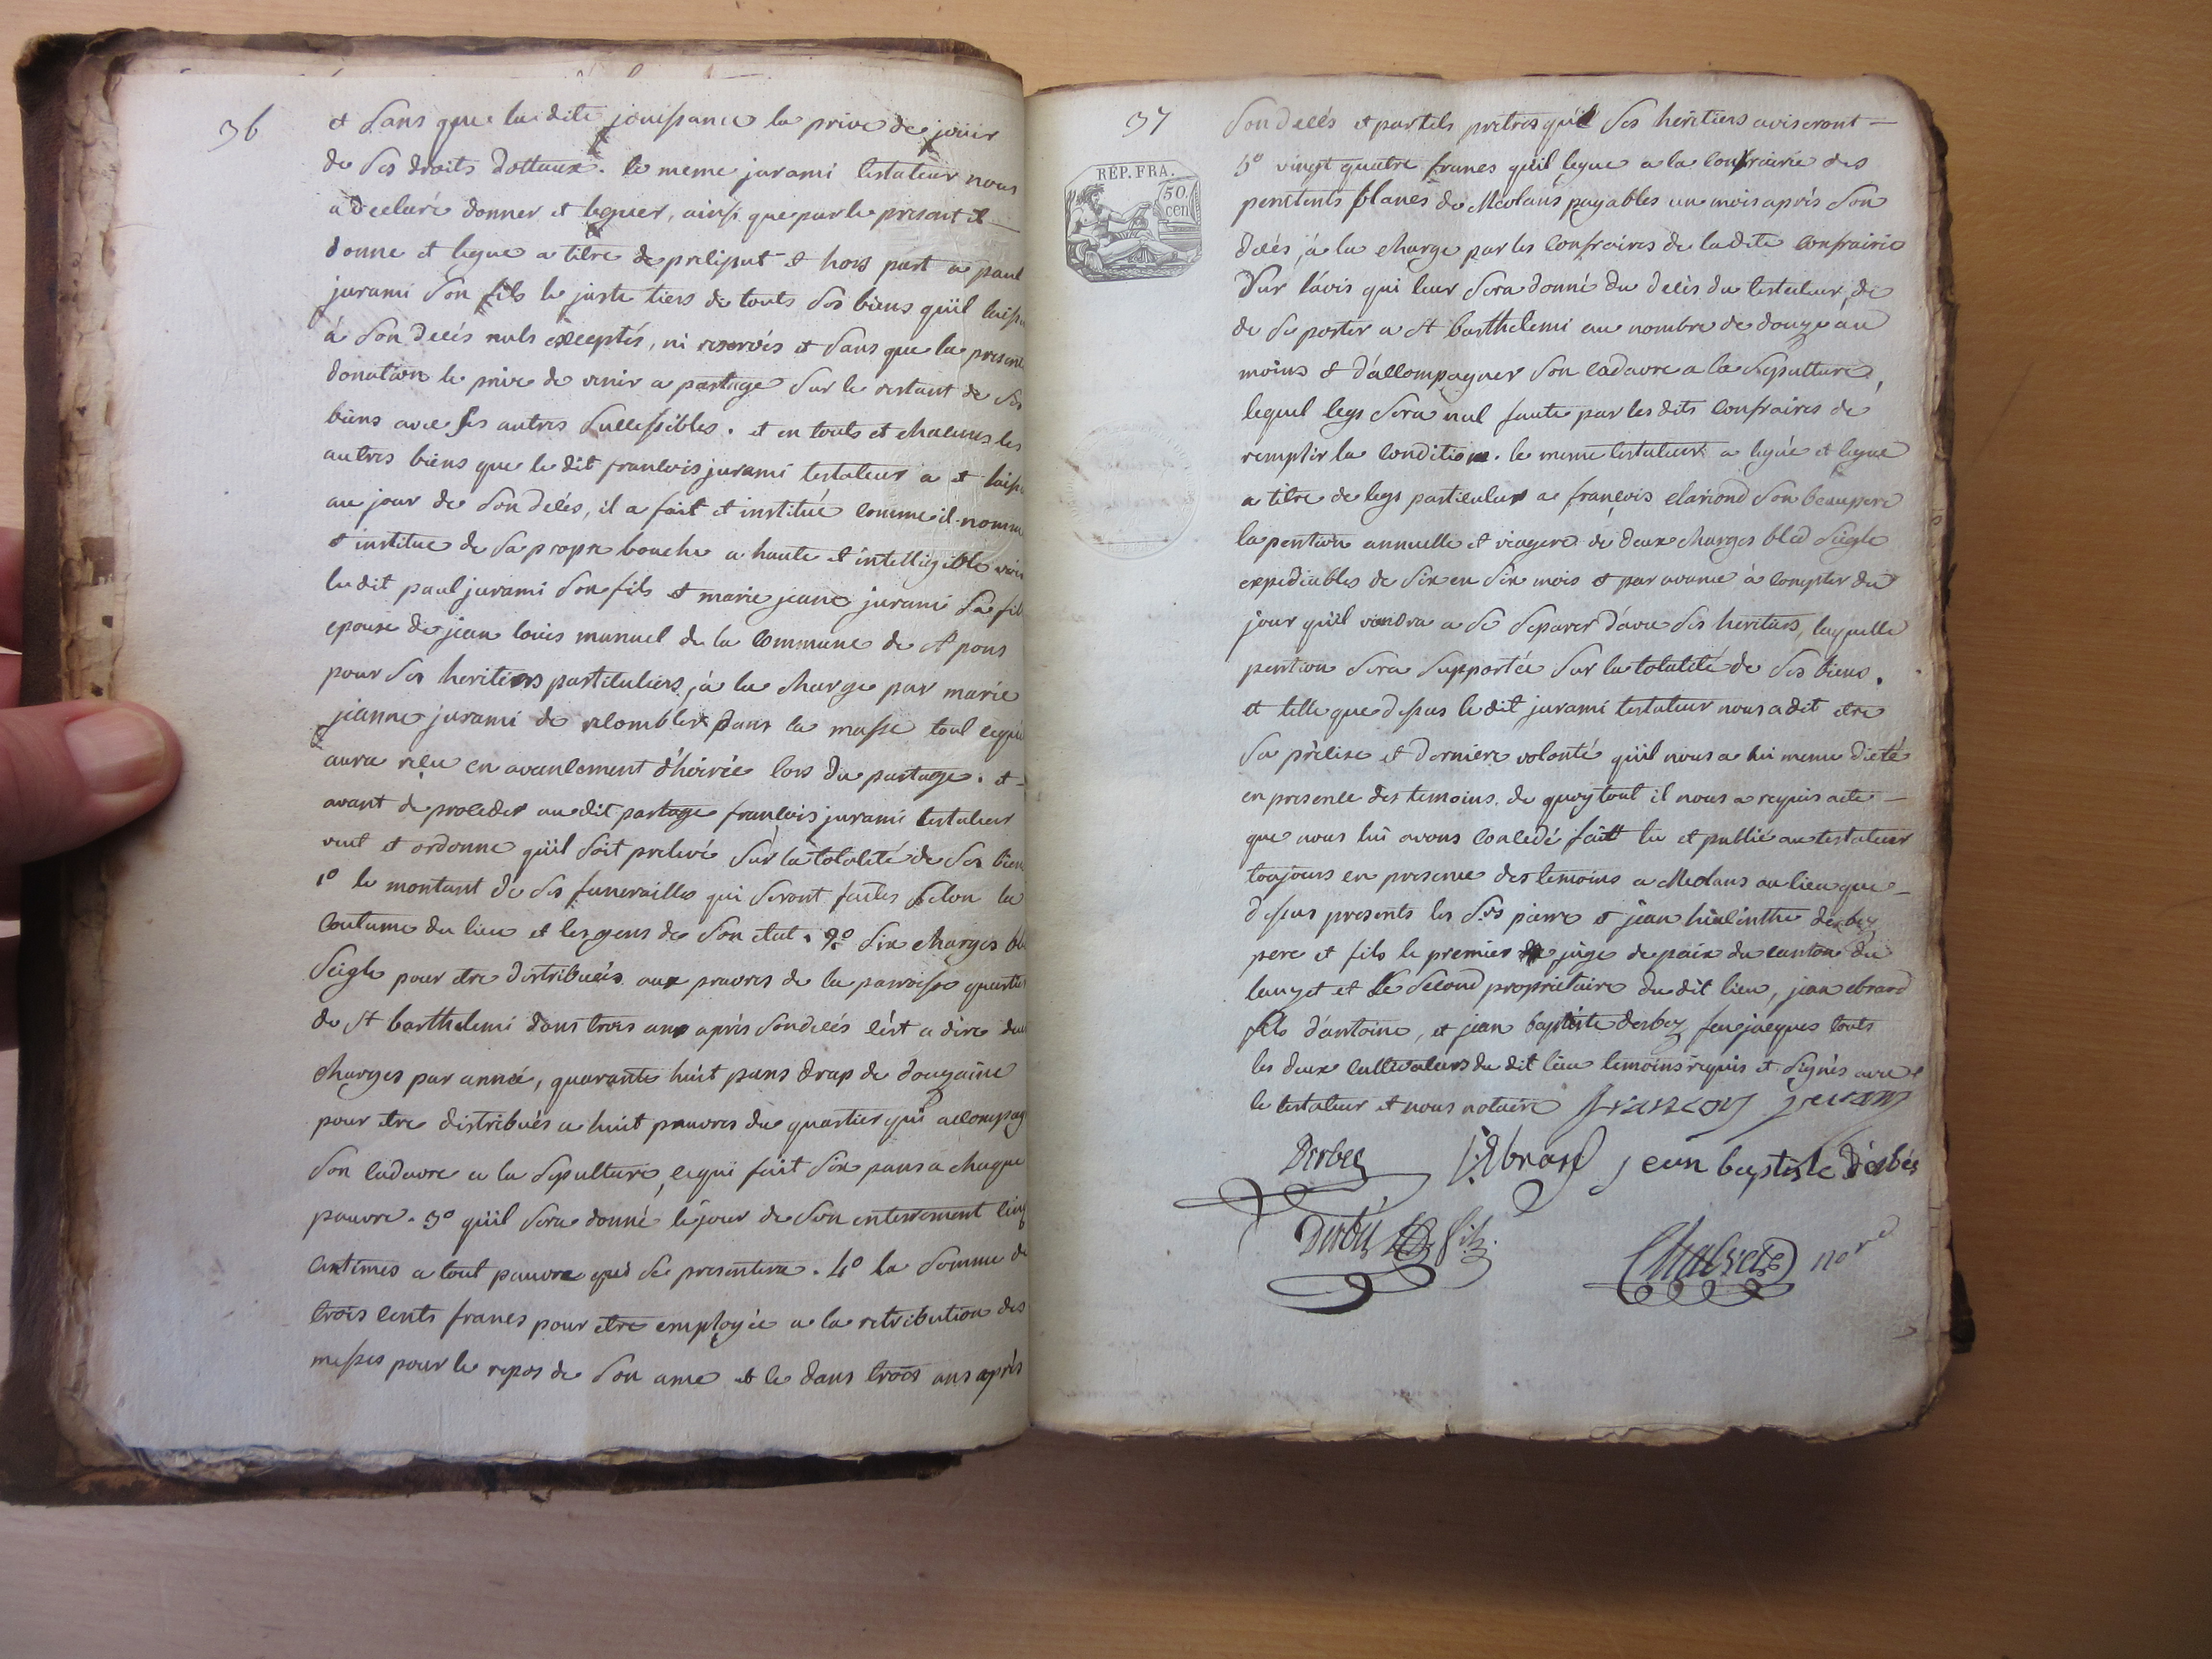 36
et sans que la dite jouissance la prive de joüir
de ses droits dottaux. le meme jurami testateur nous
a declaré donner et leguer, ainsi que par le present il
donne et legue a titre de preliput et hors part a paul
jurami son fils le juste tiers de touts ses biens qu'il laisse
à son decés nuls exceptés, ni reservés et sans que la presente
donation le prive de venir a partage sur le restant de ses
biens avec ses autres successibles. et en touts et chacuns les
autres biens que le dit francois jurami testateur a et laisse
au jour de son decés, il a fait et institué comme il nomme
et institue de sa propre bouche a haute et intelligible voix
le dit paul jurami son fils et marie jeane jurami sa fille
epouse de jean louis manuel de la commune de st pons
pour ses heritiers partituliers, à la charge par marie
jeanne jurami de recombler dans la masse tout ce qu'
aura reçu en avancement d'hoirée lors du partage. et
avant de proceder au dit partage françois jurami testateur
veut et ordonne qu'il soit prelevé sur la totalité de ses biens
1º le montant de ses funerailles qui seront faites selon la
coutume du lieu et les gens de son etat. 2º six charges blé
seigle pour etre distribuées aux pauvres de la parroisse quartier
de st barthelemi dans trois ans après son decés c'est a dire deux
charges par année, quarante huit pans drap de douzaine
pour etre distribués a huit pauvres du quartier qui accompag
son cadavre a la sepulture, ce qui fait six pans a chaque
pauvre. 3º qu'il sera donné le jour de son enterrement cinq
centimes a tout pauvre qui se presentera. 4º la somme de
trois cents francs pour etre employée a la retribution des
messes pour le repos de son ame et ce dans trois ans après
37
RÉP. FRA.
50
cen
son decés et par tels pretres qu'il ses heritiers aviseront
5º vingt quatre francs qu'il legue a la confrairie des
penitents blancs de Meolans payables un mois aprés son
decés, à la charge par les confraires de la dite confrairie
sur l'avis qui leur sera donné du decés du testateur, de
de se porter a st barthelemi au nombre de douze au
moins et d'accompagner son cadavre a la sepulture,
lequel legs sera nul faute par les dits confraires de
remplir la condition. le meme testateur a legué et legue
a titre de legs particulier a françois clariond son beaupere
la pention annuelle et viagere de deux charges bled seigle
expediables de six en six mois et par avance à compter du
jour qu'il viendra a se separer d'avec ses heritiers, laquelle
pention sera supportée sur la totalité de ses biens.
et telle que dessus le dit jurami testateur nous a dit etre
sa precise et derniere volonté qu'il nous a lui meme dicté
en presence des temoins. de quoy tout il nous a requis acte
que nous lui avons concedé fait lu et publié au testateur
toujours en presence des temoins a Meolans au lieu que
dessus presents les srs pierre et jean hiacinthe derbez
pere et fils le premier juge de paix du canton du
lauzet et le second proprietaire du dit lieu, jean ebrard
fils d'antoine, et jean baptiste derbez feu jacques touts
les deux cultivateurs du dit lieu temoins requis et signés avec
le testateur et nous notaire francoy juram
Derbez J: Ebrard jean baptiste derbés
Derbez fils.
nore